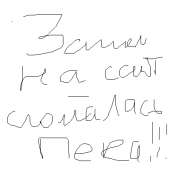 Зашел
на сайт
сломалась
пека!!!